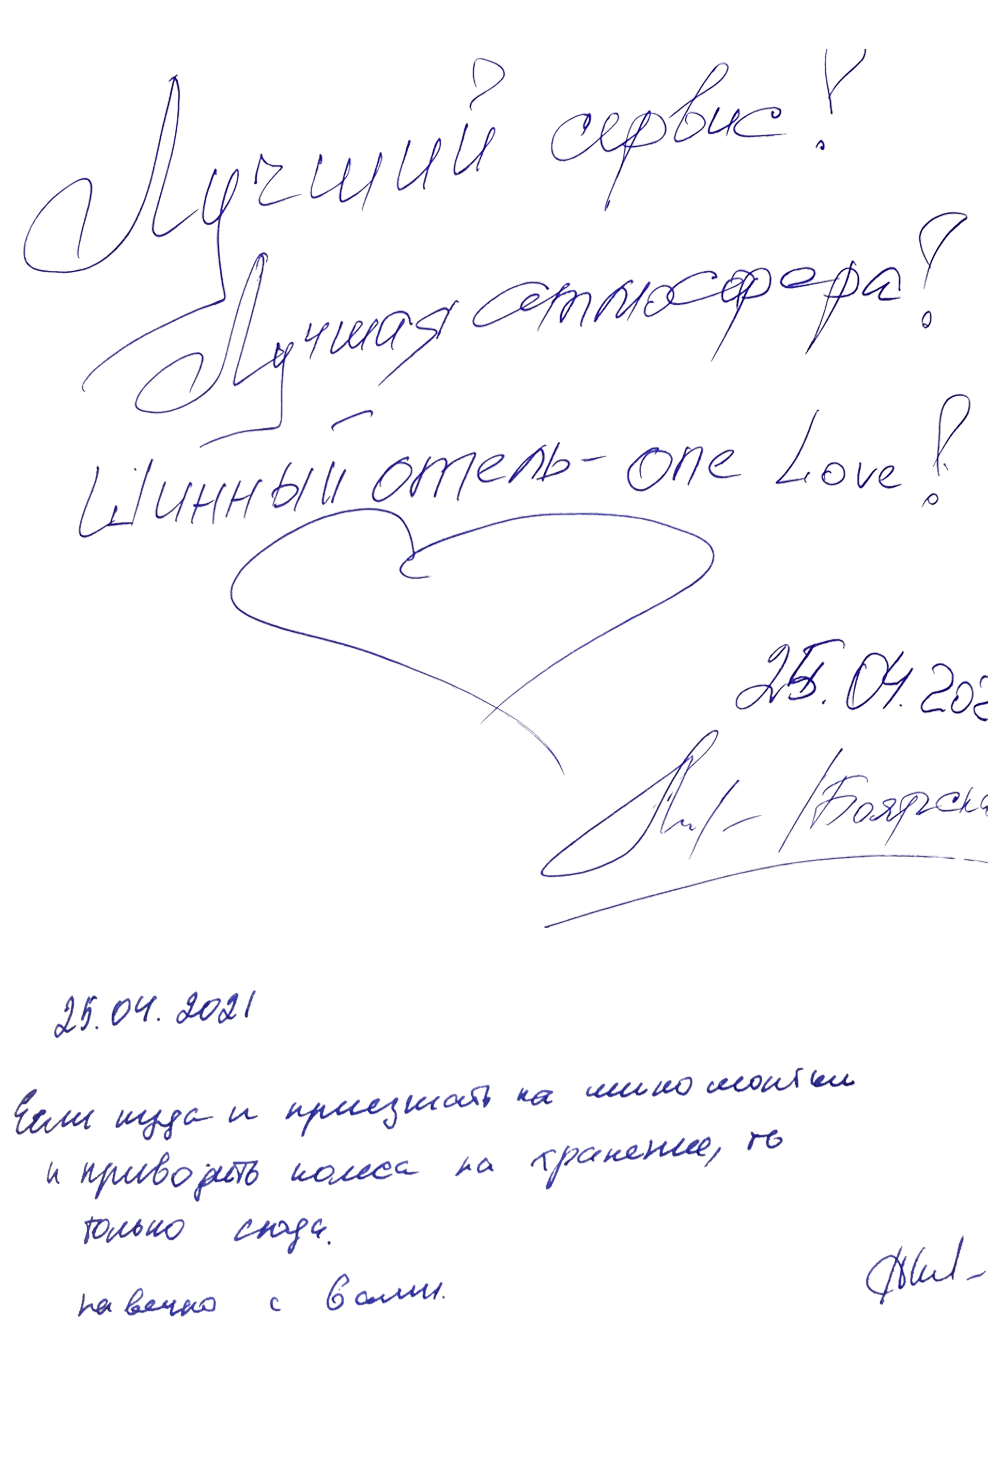 Лучший сервис!
Лучшая атмосфера!
Шинный отель - one Love!
25.04.202
/Боярска
25.04.2021
Если куда и приезжать на
и привозить колеса на хранение, то
только сюда.
навечно с Вами.